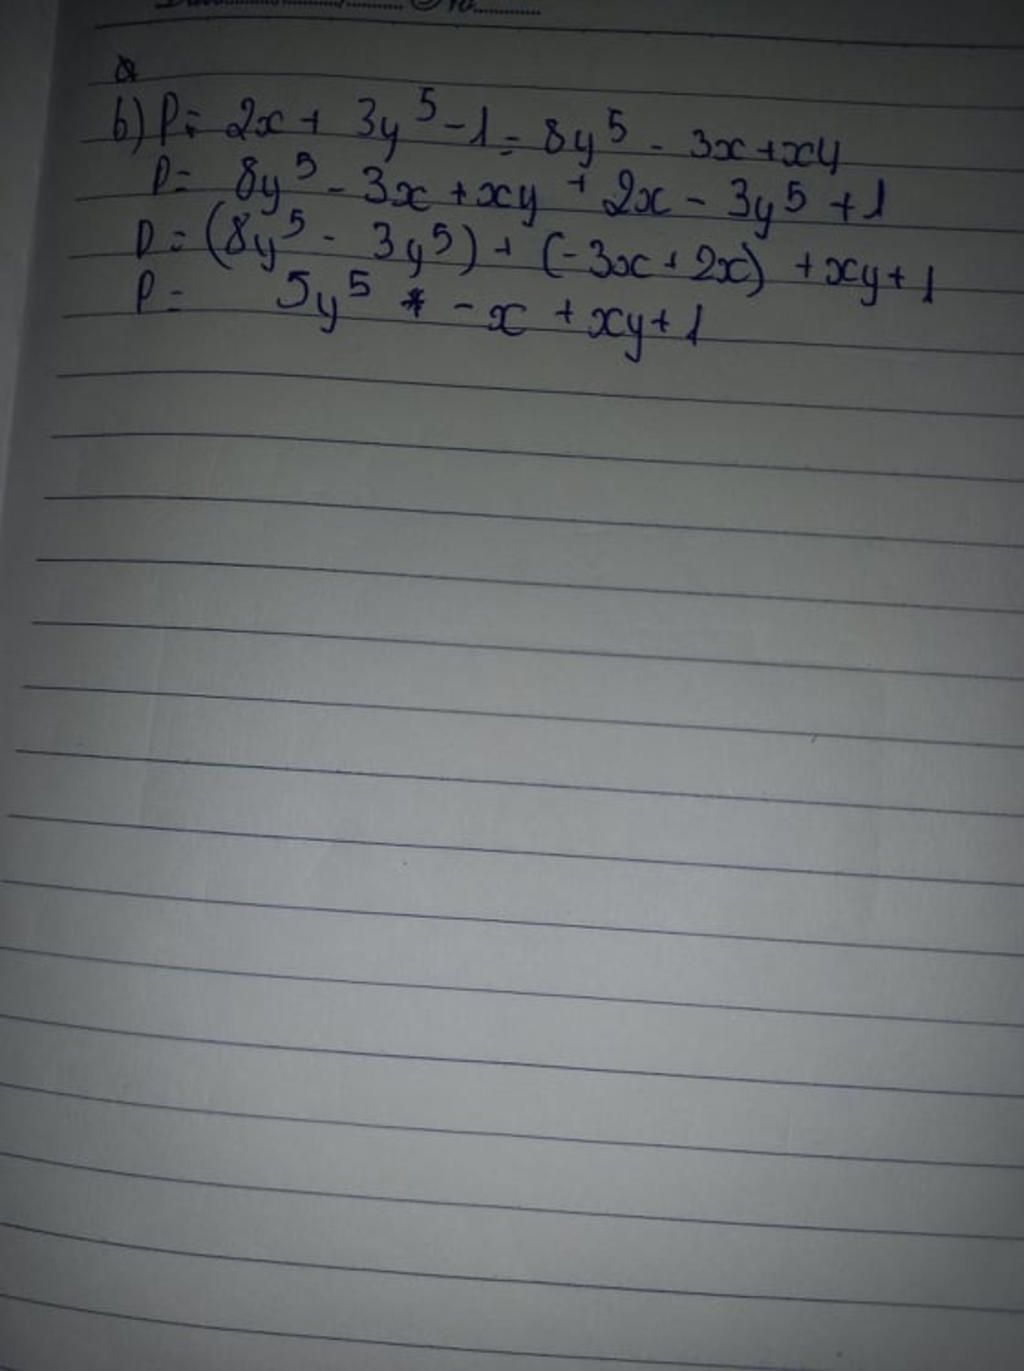 b) P = 2x + 3y⁵ - 1 = 8y⁵ - 3x + xy
P = 8y⁵ - 3x + xy + 2x - 3y⁵ + 1
P = (8y⁵ - 3y⁵) + (-3x + 2x) + xy + 1
P = 5y⁵ - x + xy + 1